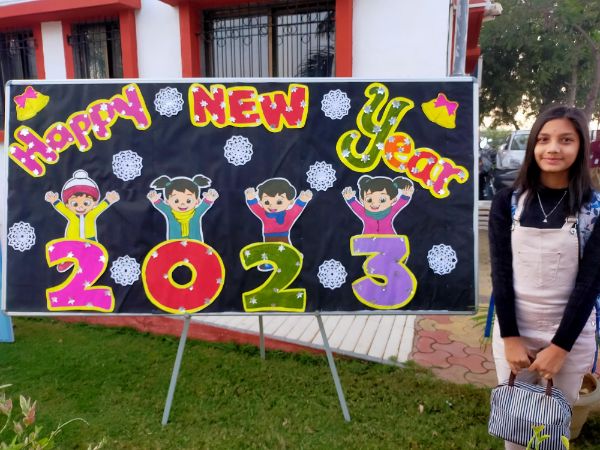 Happy NEW Year
2023